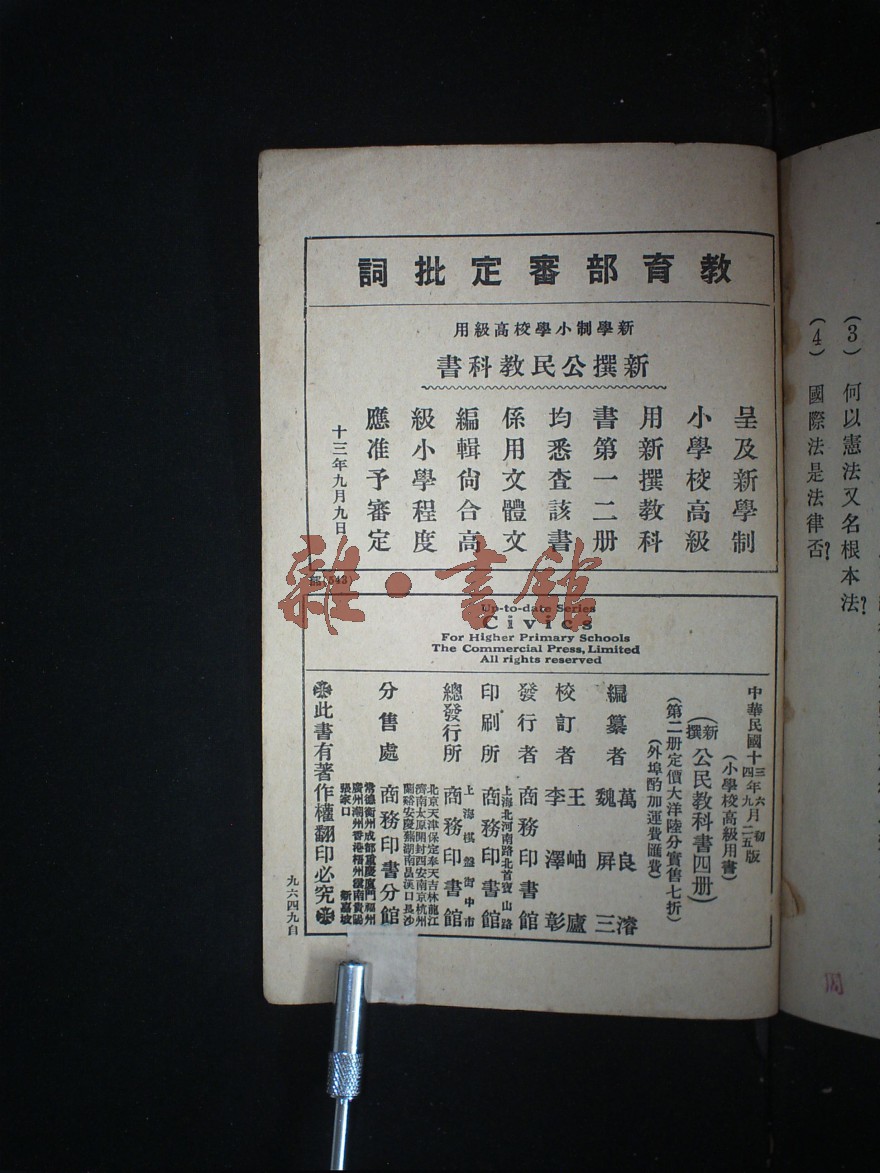 教育部審定批詞
新學制小學校高級用
新撰公民教科書
呈及新學制
小學校高級
用新撰教科
書第一二册
均悉查該書
係用文體文
編輯尙合高
級小學程度
應准予審定
十三年九月九日
部543
雜·書館
Up-to-date Series
Civics
For Higher Primary Schools
The Commercial Press, Limited
All rights reserved
中華民國十三年六月初版
四年九月二五版
(小學校高級用書)
(新撰)公民教科書四册)
(第二册定價大洋陸分實售七折)
(外埠酌加運費匯費)
編纂者 萬良濬
魏屏三
校訂者 王岫廬
李澤彰
發行者 商務印書館
上海北河南路北首寶山路
印刷所 商務印書館
上海棋盤街中市
總發行所 商務印書館
北京天津保定奉天吉林龍江
濟南太原開封西安南京杭州
蘭谿安慶蕪湖南昌漢口長沙
分售處 商務印書分館
常德衡州成都重慶廈門福州
廣州潮州香港梧州雲南貴陽
張家口 新嘉坡
此書有著作權翻印必究
九六四九自
(3) 何以憲法又名根本法?
(4) 國際法是法律否?